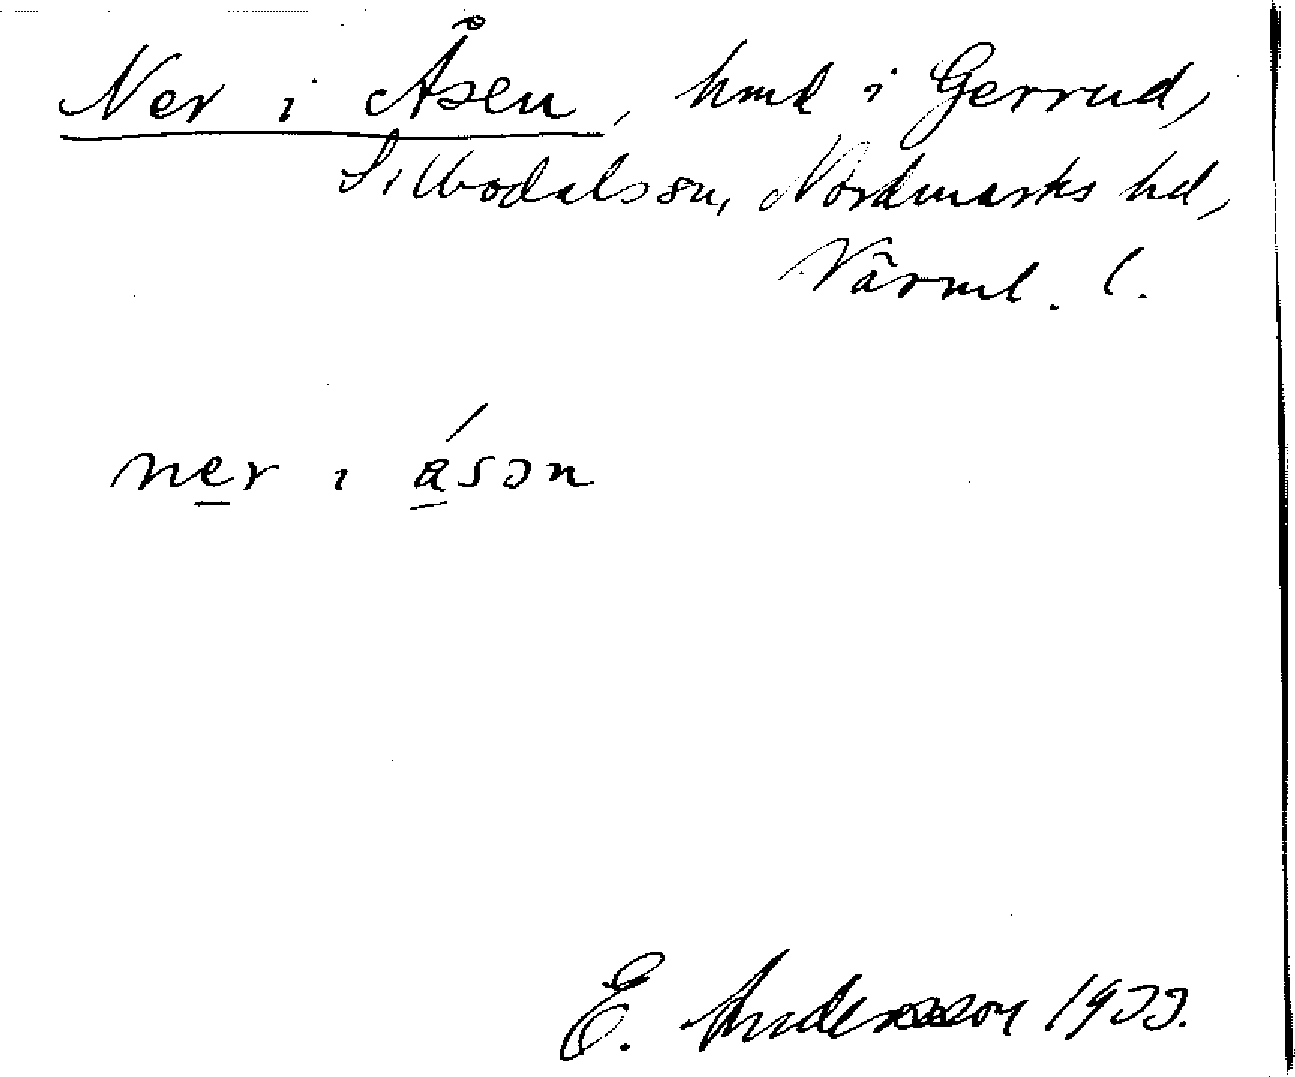 Ner i Åsen, hmd i Gerrud,
Silbodals sn, Nordmarks hd,
Värml. l.
ner i ásən
E. Andersson 1933.